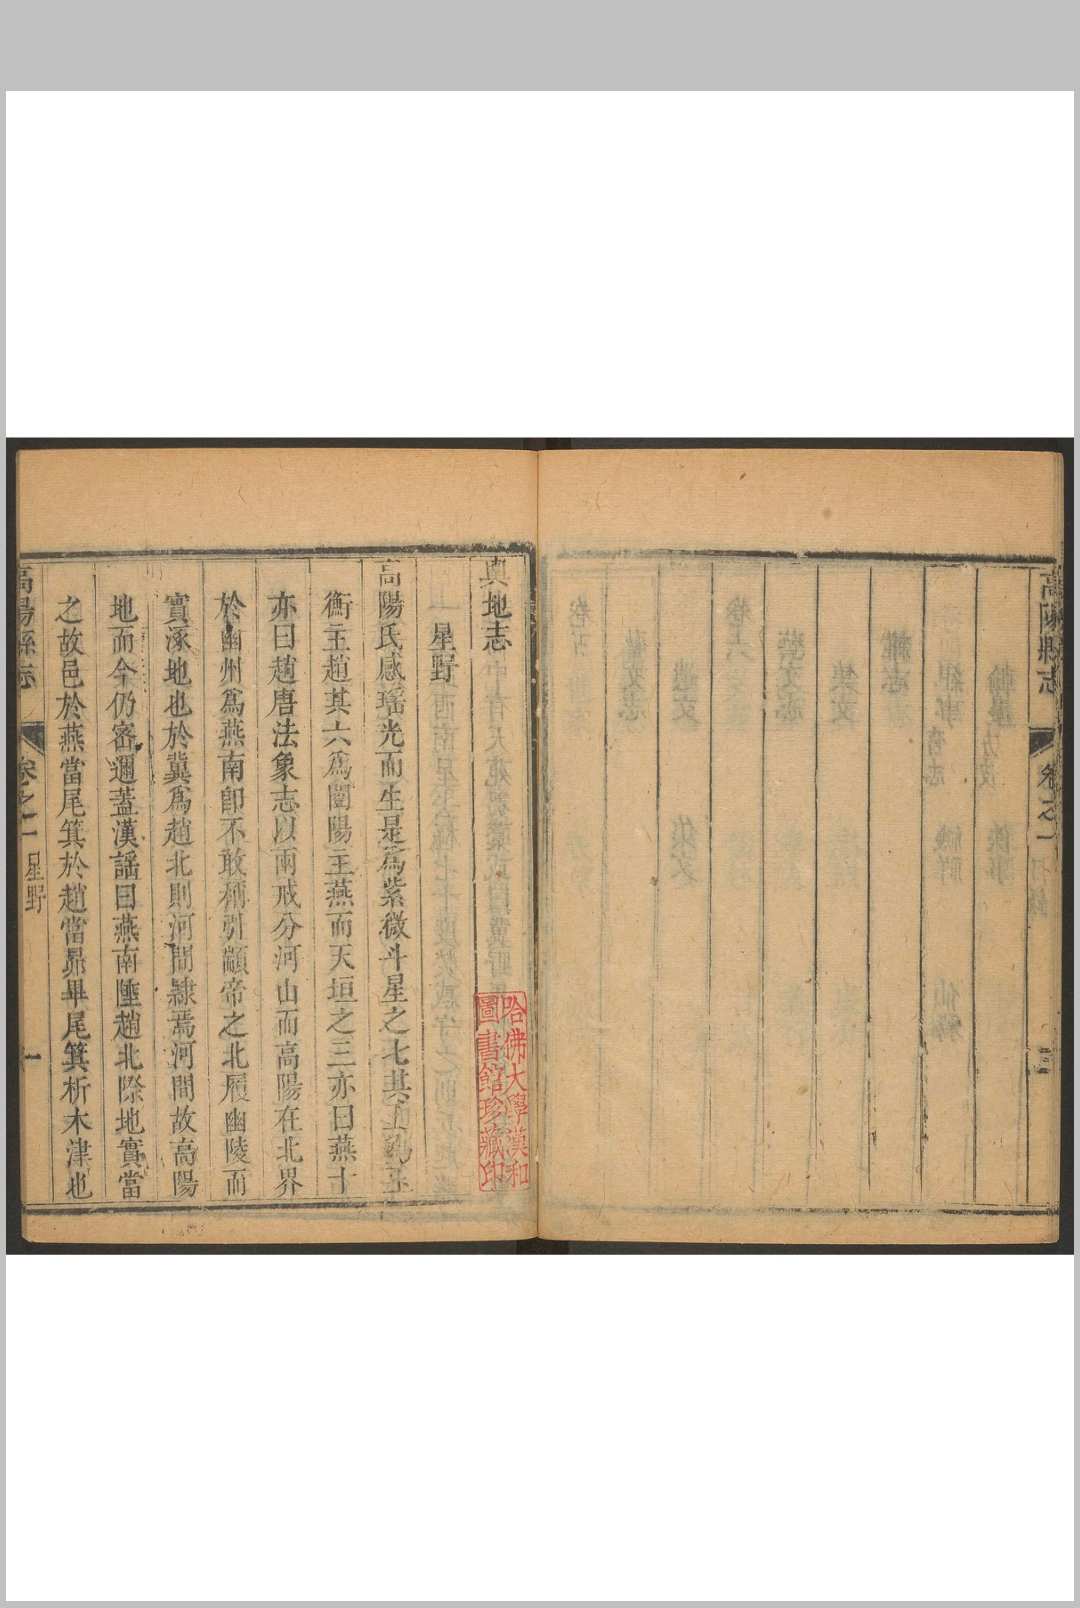 高陽縣志
卷之一
輿地志
星野
高陽氏感瑤光而生是爲紫微斗星之七其五爲玉
衡主趙其六爲闓陽主燕而天垣之三亦曰燕十
亦曰趙唐法象志以兩戒分河山而高陽在北界
於幽州爲燕南卽不敢稱引顓帝之北履幽陵而
實涿地也於冀爲趙北則河間隷焉河間故高陽
地而今仍密邇蓋漢謠曰燕南陲趙北際地實當
之故邑於燕當尾箕於趙當昴畢尾箕析木津也
高陽縣志
卷之一
星野
一
哈佛大學漢和
圖書館珍藏印